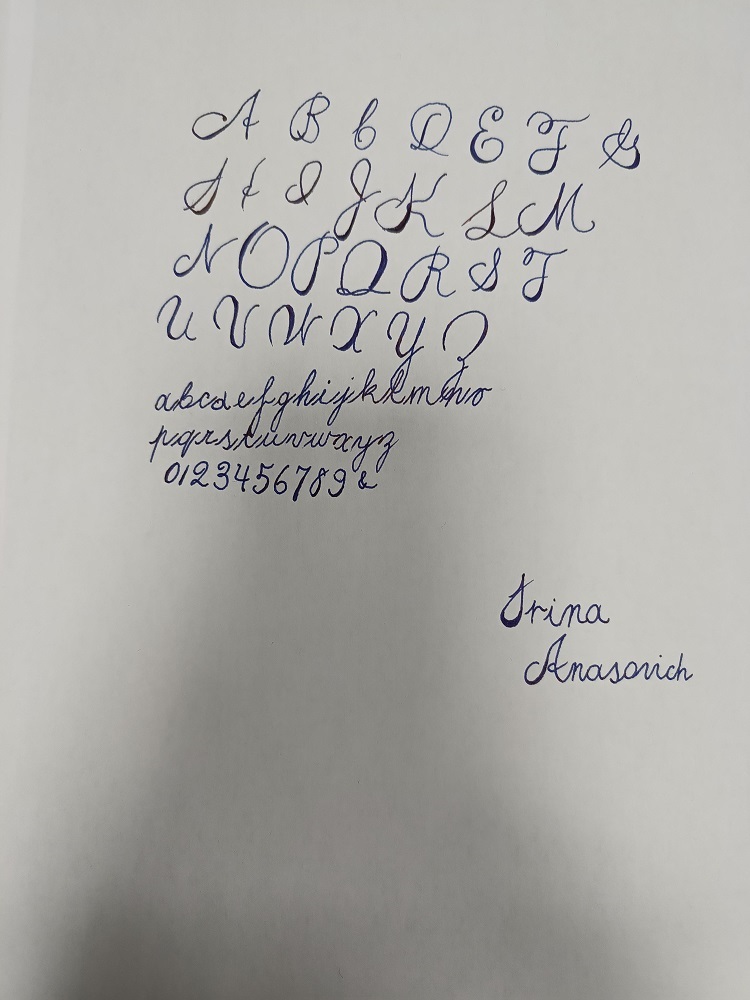 A B C D E F G
H I J K L M
N O P Q R S T
U V W X Y Z
abcdefghijklmno
pqrstuvwxyz
0123456789 &
Irina
Anasovich